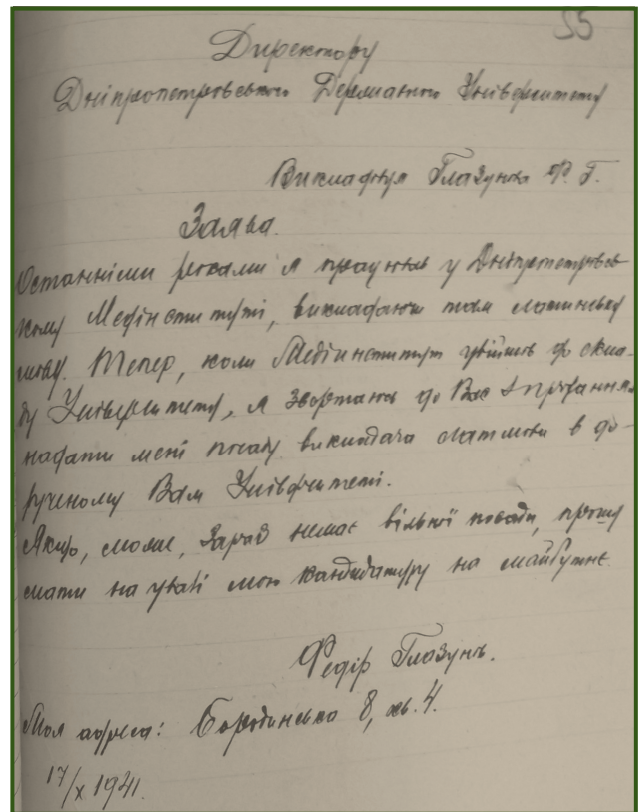 55
Директору
Дніпропетровського Державного Університету
Викладача Глазунова Ф. Г.
Заява.
Останніми роками я працював у Дніпропетровсь-
кому Медінституті, викладаючи там латинську
мову. Тепер, коли Медінститут увійшов до скла-
ду Університету, я звертаюсь до Вас з проханням
надати мені посаду викладача латмови в до-
рученому Вам Університеті.
Якщо, може, зараз немає вільної посади, прошу
мати на увазі мою кандидатуру на майбутнє.
Федір
Моя адреса: 8, кв. 4.
17/X 1941.